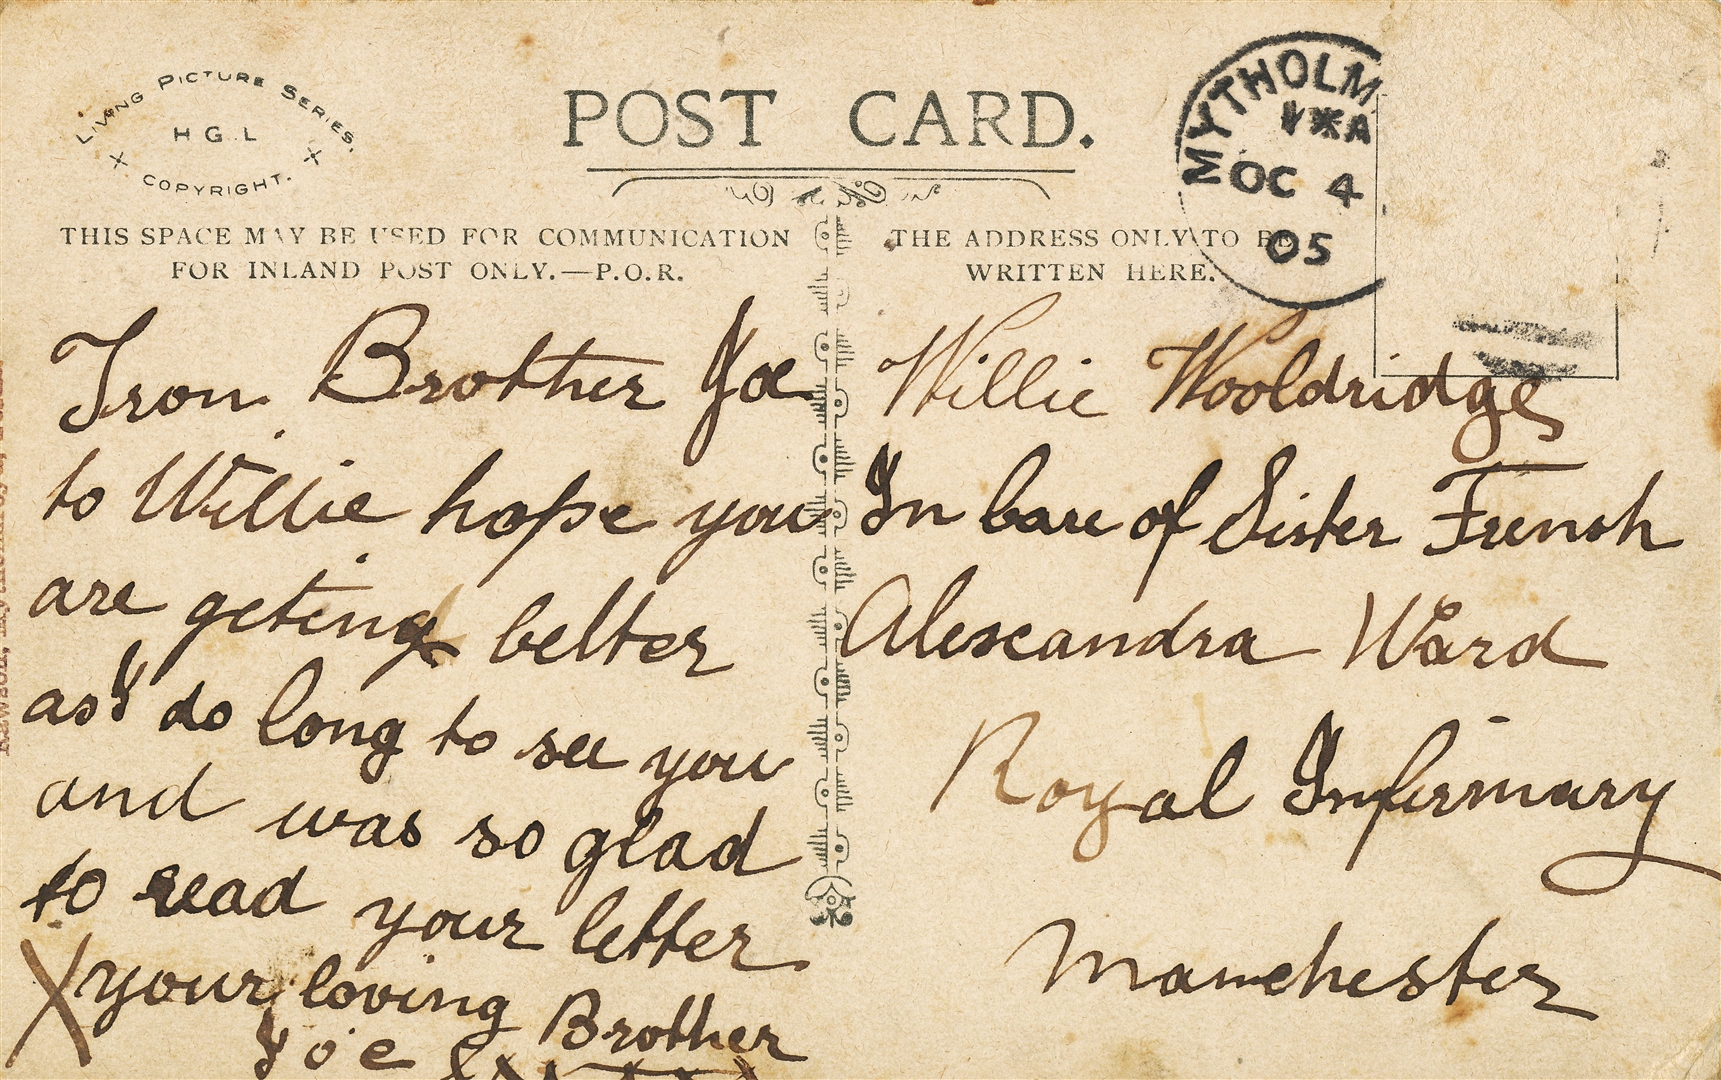 LIVING PICTURE SERIES.
H.G.L
COPYRIGHT.
POST CARD.
THIS SPACE MAY BE USED FOR COMMUNICATION
FOR INLAND POST ONLY.—P.O.R.
THE ADDRESS ONLY TO BE
WRITTEN HERE.
MYTHOLM
OC 4
05
From Brother Joe
to Willie hope you
are geting better
as I do long to see you
and was so glad
to read your letter
X your loving Brother
Joe
Willie Wooldridge
In Care of Sister French
Alexandra Ward
Royal Infirmary
Manchester